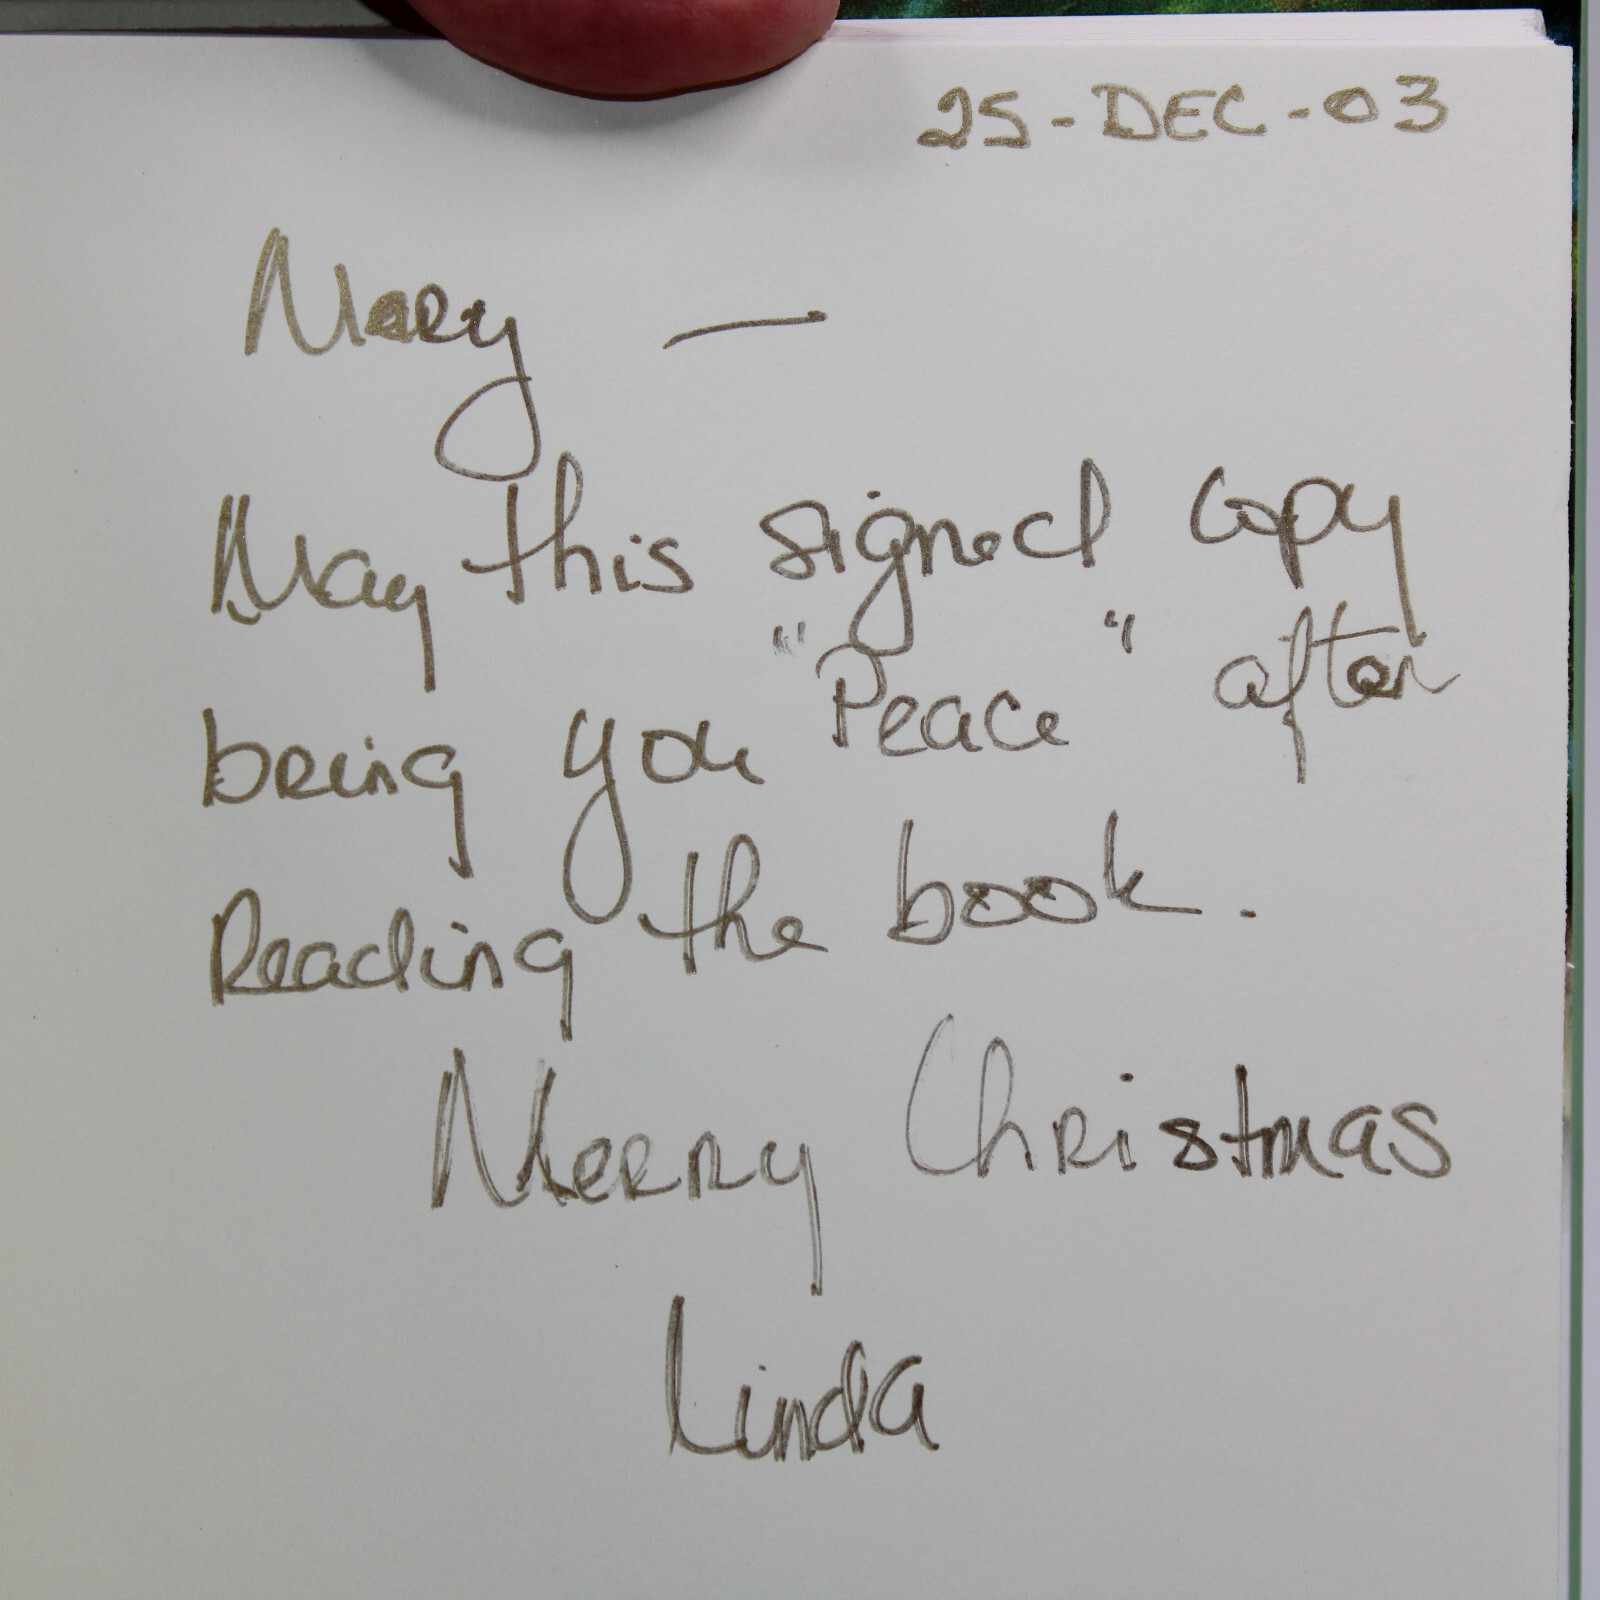 25-DEC-03
Mary —
May this signed copy
bring you "Peace" after
Reading the book.
Merry Christmas
Linda